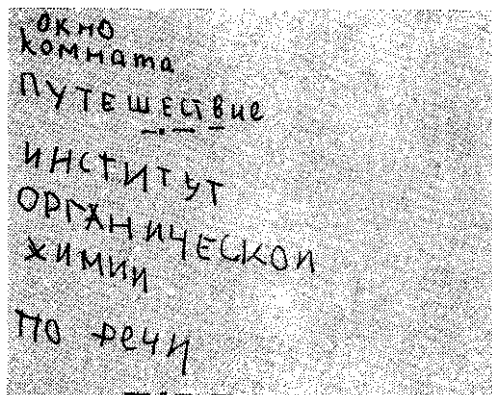 окно
комната
ПУТЕШЕСТвие
ИНСТИТУТ
ОРГАНИЧЕСКОИ
ХИМИИ
ПО речи